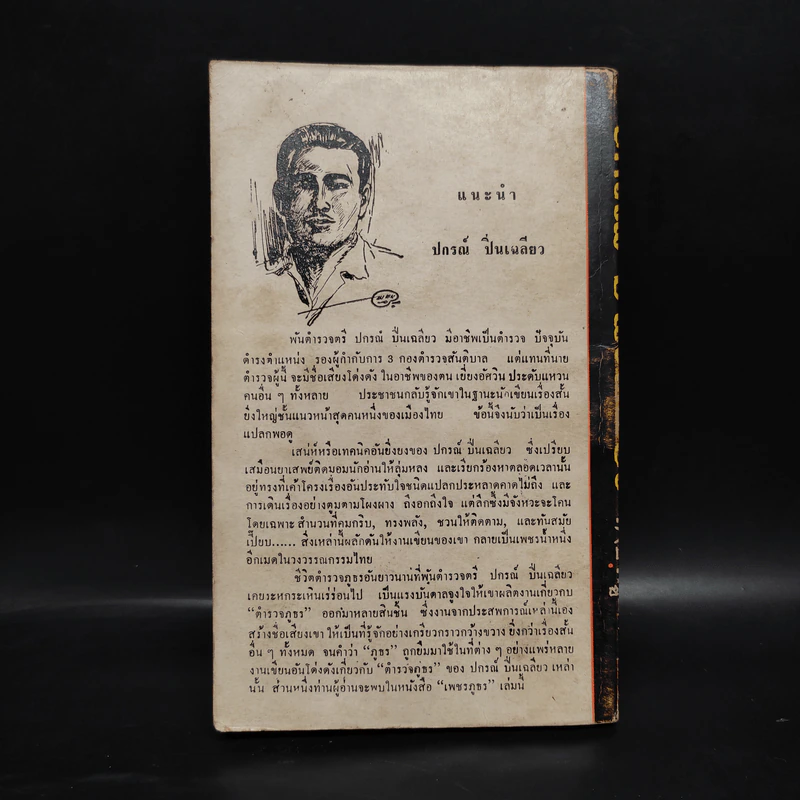 แนะนำ
ปกรณ์ ปิ่นเฉลียว
พันตำรวจตรี ปกรณ์ ปิ่นเฉลียว มีอาชีพเป็นตำรวจ ปัจจุบัน
ดำรงตำแหน่ง รองผู้กำกับการ 3 กองตำรวจสันติบาล แต่แทนที่นาย
ตำรวจผู้นี้ จะมีชื่อเสียงโด่งดัง ในอาชีพของตน เยี่ยงอัศวิน ประดับแหวน
คนอื่น ๆ ทั้งหลาย ประชาชนกลับรู้จักเขาในฐานะนักเขียนเรื่องสั้น
ยิ่งใหญ่ชั้นแนวหน้าสุดคนหนึ่งของเมืองไทย ข้อนี้จึงนับว่าเป็นเรื่อง
แปลกพอดู
เสน่ห์หรือเทคนิคอันยิ่งยงของ ปกรณ์ ปิ่นเฉลียว ซึ่งเปรียบ
เสมือนยาเสพย์ติดมอมนักอ่านให้ลุ่มหลง และเรียกร้องหาตลอดเวลานั้น
อยู่ทรงที่เค้าโครงเรื่องอันประทับใจชนิดแปลกประหลาดคาดไม่ถึง และ
การเดินเรื่องอย่างตูมตามโผงผาง ถึงอกถึงใจ แต่ลึกซึ้งมีจังหวะจะโคน
โดยเฉพาะ สำนวนที่คมกริบ, ทรงพลัง, ชวนให้ติดตาม, และทันสมัย
เปี๊ยบ...... สิ่งเหล่านี้ผลักดันให้งานเขียนของเขา กลายเป็นเพชรน้ำหนึ่ง
อีกเมดในวงวรรณกรรมไทย
ชีวิตตำรวจภูธรอันยาวนานที่พันตำรวจตรี ปกรณ์ ปิ่นเฉลียว
เคยระหกระเหินเร่ร่อนไป เป็นแรงบันดาลจูงใจให้เขาผลิตงานเกี่ยวกับ
“ตำรวจภูธร” ออกมาหลายสิบชิ้น ซึ่งงานจากประสพการณ์เหล่านี้เอง
สร้างชื่อเสียงเขา ให้เป็นที่รู้จักอย่างเกรียวกราวกว้างขวาง ยิ่งกว่าเรื่องสั้น
อื่น ๆ ทั้งหมด จนคำว่า “ภูธร” ถูกยืมมาใช้ในที่ต่าง ๆ อย่างแพร่หลาย
งานเขียนอันโด่งดังเกี่ยวกับ “ตำรวจภูธร” ของ ปกรณ์ ปิ่นเฉลียว เหล่า
นั้น ส่วนหนึ่งท่านผู้อ่านจะพบในหนังสือ “เพชรภูธร” เล่มนี้